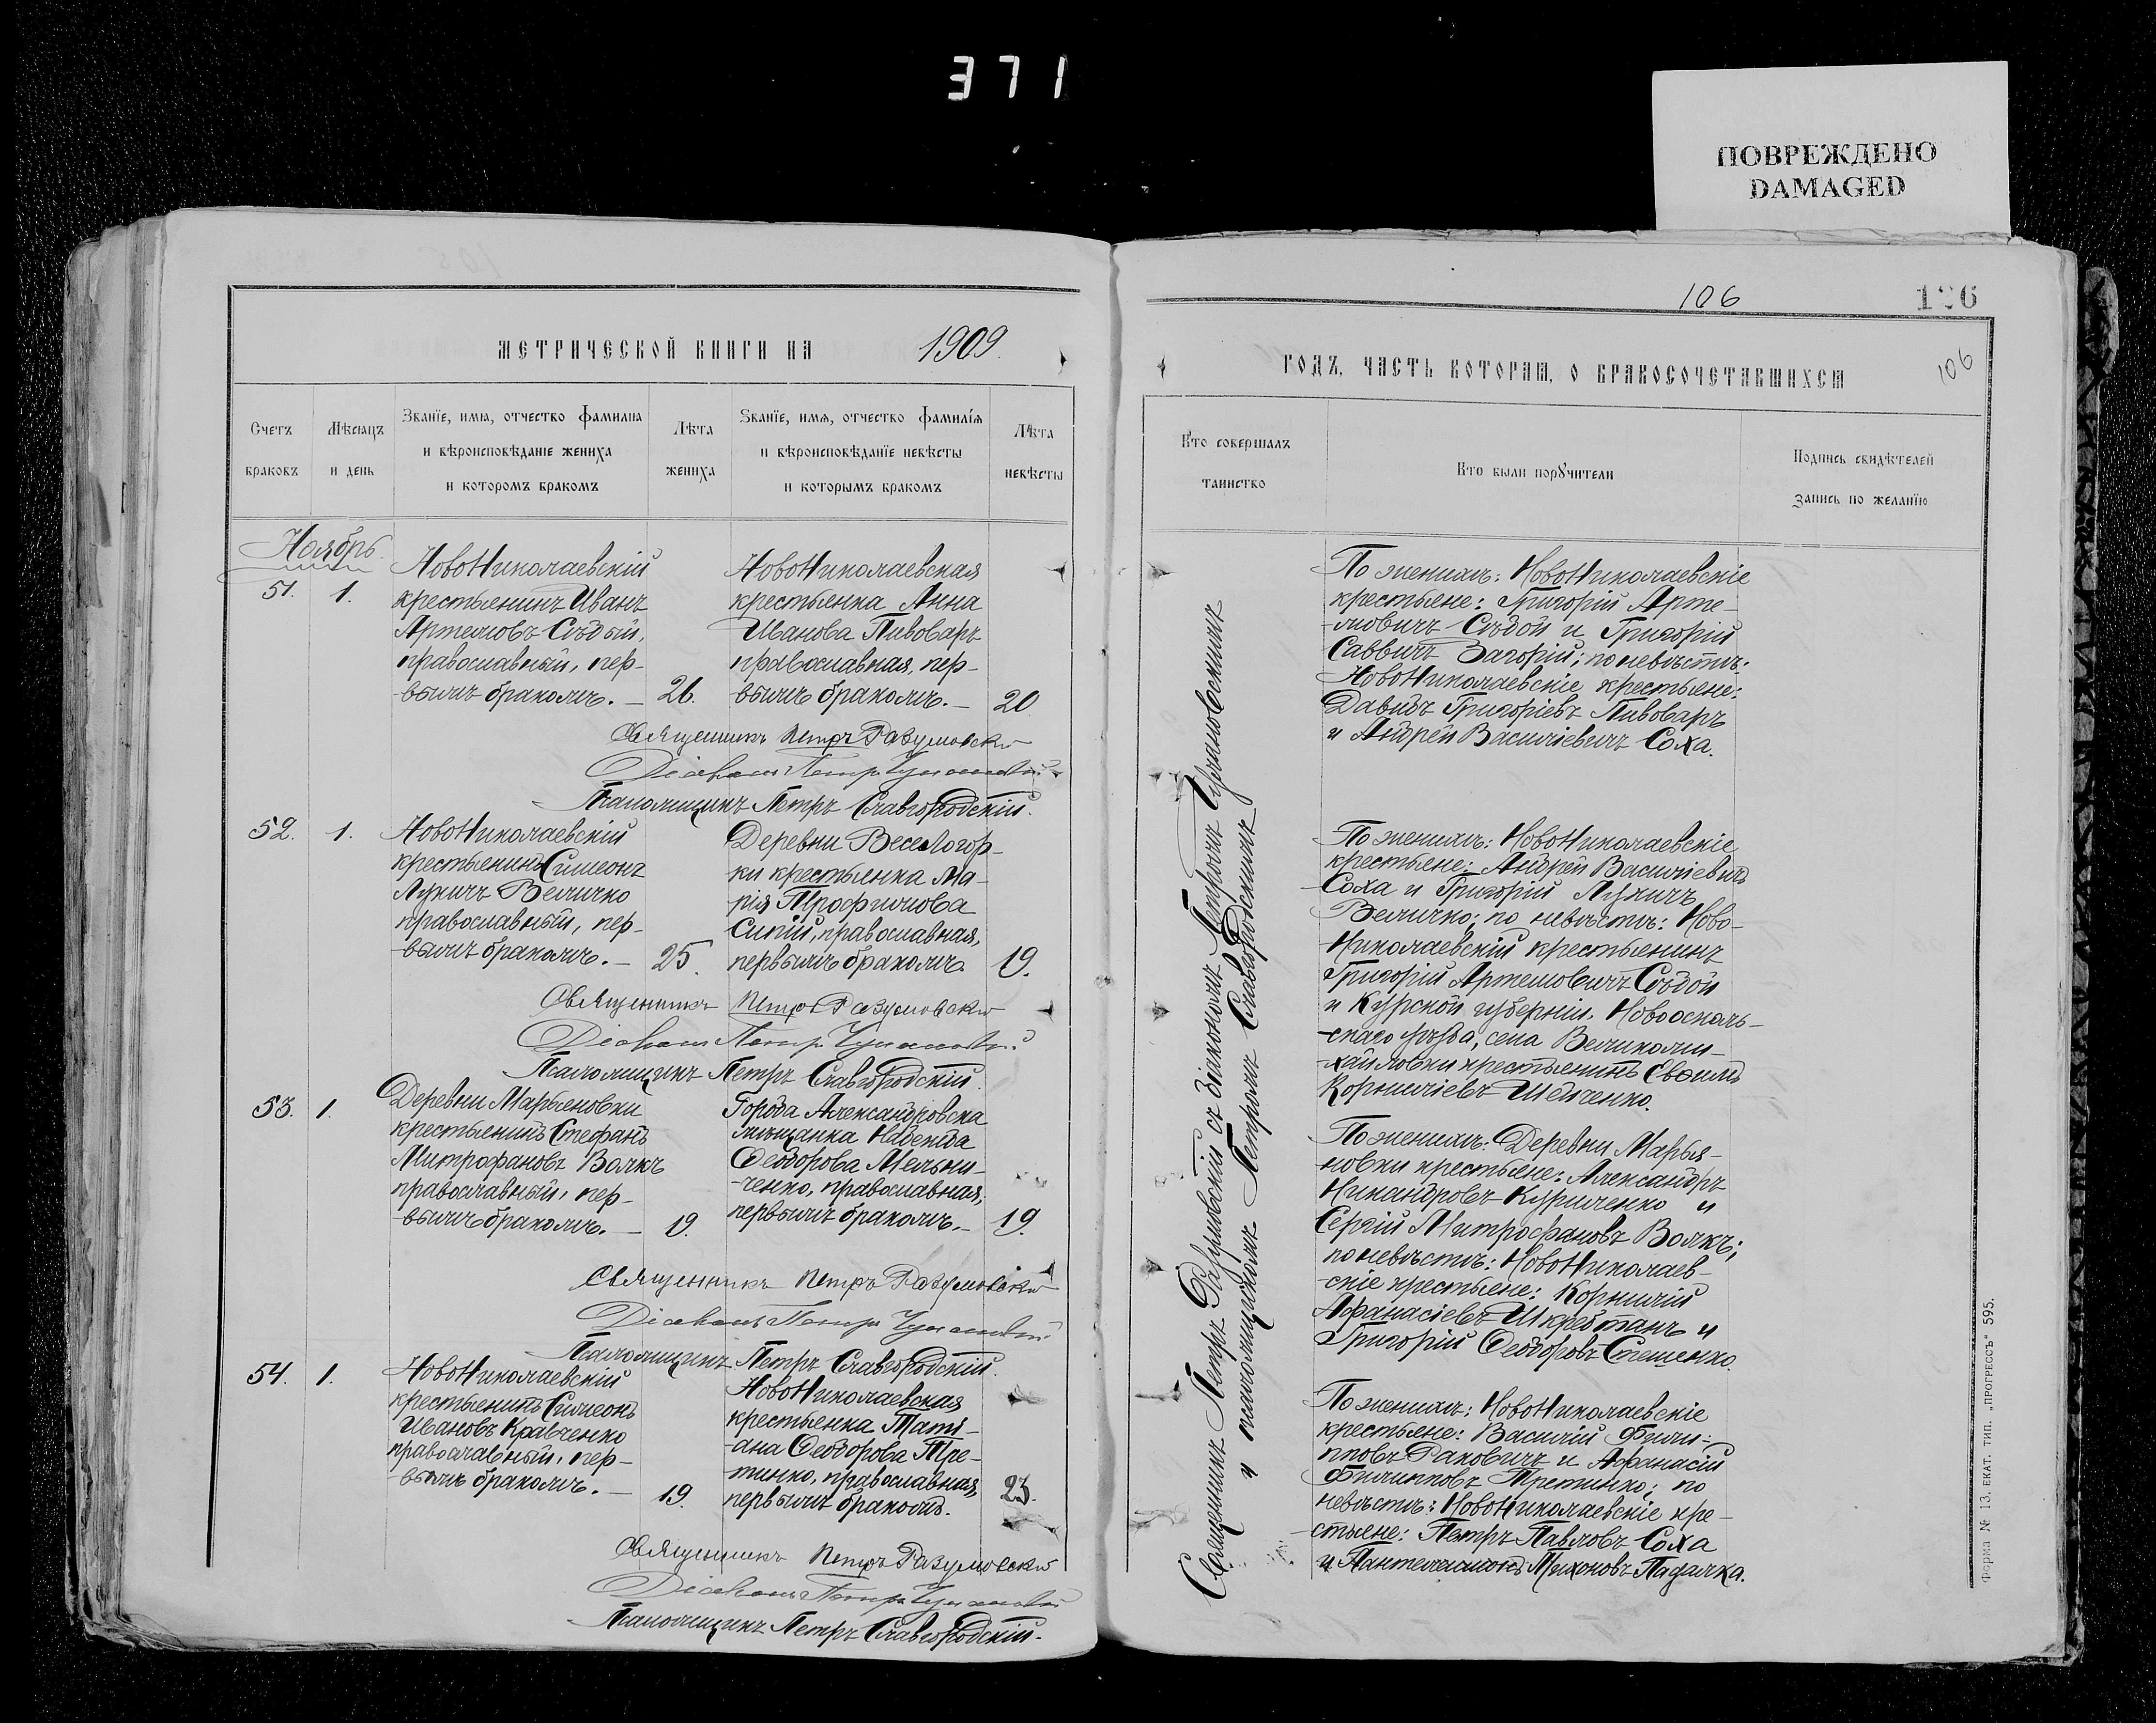 371
ПОВРЕЖДЕНО
DAMAGED
МЕТРИЧЕСКОЙ КНИГИ НА 1909.
Счетъ
браковъ
Мѣсяцъ
и день
Званїе, имя, отчество фамилиа
и вѣроисповѣданїе жениха
и которомъ бракомъ
Лѣта
жениха
Званїе, имѧ, отчество фамилїѧ
и вѣроисповѣданїе невѣсты
и которымъ бракомъ
Лѣта
невѣсты
Ноябрь.
51. 1.
НовоНиколаевскій
крестьянинъ Иванъ
Артемовъ Сѣдый,
православный, пер-
-вымъ бракомъ. — 26.
НовоНиколаевская
крестьянка Анна
Иванова Пивоваръ
православная, пер-
вымъ бракомъ. — 20.
Священникъ Петръ Разумовскій
Діаконъ Петръ
Псаломщикъ Петръ Славгородскій.
52. 1.
НовоНиколаевскій
крестьянинъ Симеонъ
Лукичъ Величко
православный, пер-
-вымъ бракомъ. — 25.
Деревни Веселогор-
ки крестьянка Ма-
рія Трофимова
Синій, православная,
первымъ бракомъ. 19.
Священникъ Петръ Разумовскій
Діаконъ Петръ
Псаломщикъ Петръ Славгородскій.
53. 1.
Деревни Марьяновки
крестьянинъ Стефанъ
Митрофановъ Волкъ
православный, пер-
-вымъ бракомъ. — 19.
Города Александровска
мѣщанка Надежда
Ѳеодорова Мельни-
-ченко, православная,
первымъ бракомъ. — 19.
Священникъ Петръ Разумовскій
Діаконъ Петръ
Псаломщикъ Петръ Славгородскій.
54. 1.
НовоНиколаевскій
крестьянинъ Симеонъ
Ивановъ Кравченко
православный, пер-
-вымъ бракомъ. — 19.
НовоНиколаевская
крестьянка Таті-
-ана Ѳеодорова Тре-
-тинко, православная,
первымъ бракомъ. 23.
Священникъ Петръ Разумовскій
Діаконъ Петръ
Псаломщикъ Петръ Славгородскій.
106 126
106
ГОДЪ, ЧАСТЬ ВТОРАЯ, О БРАКОСОЧЕТАВШИХСЯ
Кто совершалъ
таинство
Кто были порꙋчители
Подпись свидѣтелей
запись по желанїю
Священникъ Петръ Разумовскій съ діакономъ Петромъ
и псаломщикомъ Петромъ Славгородскимъ
По женихѣ: НовоНиколаевскіе
крестьяне: Григорій Арте-
-мовичъ Сѣдой и Григорій
Саввичъ Загорій; по невѣстѣ:
НовоНиколаевскіе крестьяне:
Давидъ Григоріевъ Пивоваръ
и Андрей Василіевичъ Соха.
По женихѣ: НовоНиколаевскіе
крестьяне: Андрей Василіевичъ
Соха и Григорій Лукичъ
Величко; по невѣстѣ: Ново-
-Николаевскій крестьянинъ
Григорій Артемовичъ Сѣдой
и Курской губерніи, Новооколь-
-скаго уѣзда, села Великоми-
-хайловки крестьянинъ
Корниліевъ Шевченко.
По женихѣ: Деревни Марья-
новки крестьяне: Александръ
Никандровъ Куриленко и
Сергій Митрофановъ Волкъ;
по невѣстѣ: НовоНиколаев-
-скіе крестьяне: Корнилій
Афанасіевъ и
Григорій Ѳеодоровъ Стешенко.
По женихѣ: НовоНиколаевскіе
крестьяне: Василій Фили-
пповъ Раковичъ и Афанасій
Филипповъ Третинко; по
невѣстѣ: НовоНиколаевскіе кре-
-стьяне: Петръ Павловъ Соха
и Пантелеимонъ Тихоновъ Падалка.
Форма № 13. ЕКАТ. ТИП. „ПРОГРЕССЪ“ 595.